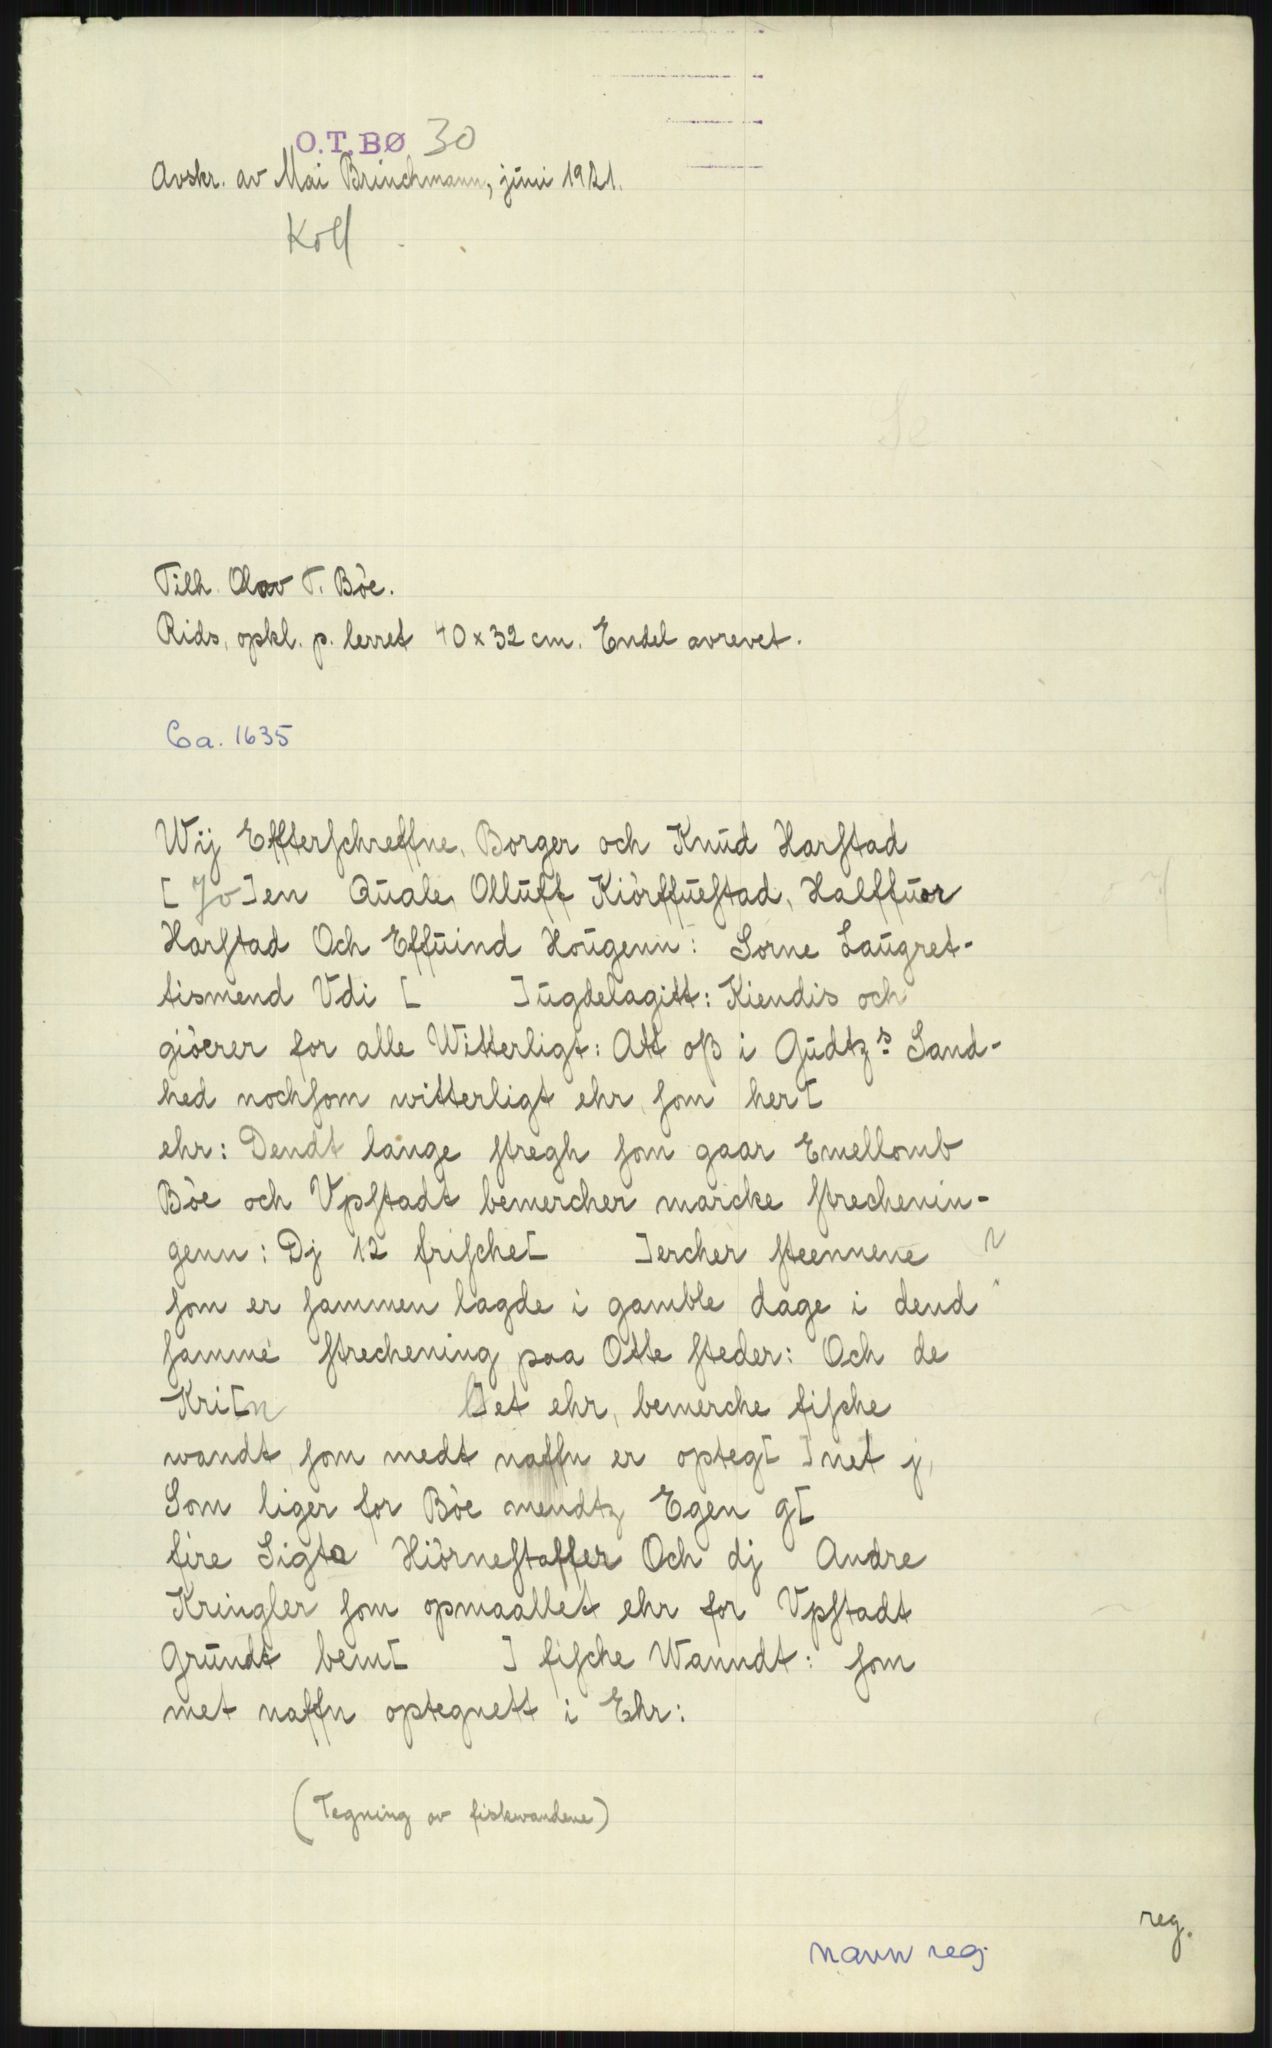 O.T.BØ 30
Avskr. av Mai Brinchmann, juni 1921.
Koll
Tilh. Olav T. Böe.
Rids, opkl. p. lerret 40 x 32 cm. Endel avrevet.
Ca. 1635
Wij Effterſchreffne, Borger och Knud Harſtad
[Jo]en Quale, Olluff Kiörffueſtad, Halffuor
Harſtad Och Effuind Hougenn: Sorne Laugret-
tismend Vdi [ ]ugdelagitt: Kiendis och
giöerer for alle Witterligt: Att oß i Gudtzs Sand-
hed nochſom witterligt ehr ſom her[
ehr: Dendt lange ſtregh ſom gaar Emellomb
Böe och Vpſtadt bemercher marcke ſtrechenin-
genn: Dj 12 friſche[ ]ercher ſteennene
ſom er ſammen lagde i gamble dage i dend
ſamme ſtrechening paa Otte ſteder: Och de
Kri[n ]et ehr, bemerche fiſche
wandt ſom medt naffn er opteg[ ]net j,
Som liger for Böe mendtz Egen g[
fire Sigta Hiörneſtaffer Och dj Andre
Kringler ſom opmaallet ehr for Vpſtadt
Grundt bem[ ] fiſche Wanndt: ſom
met naffn optegnett i Ehr:
(Tegning av fiskevandene)
reg.
navn reg.